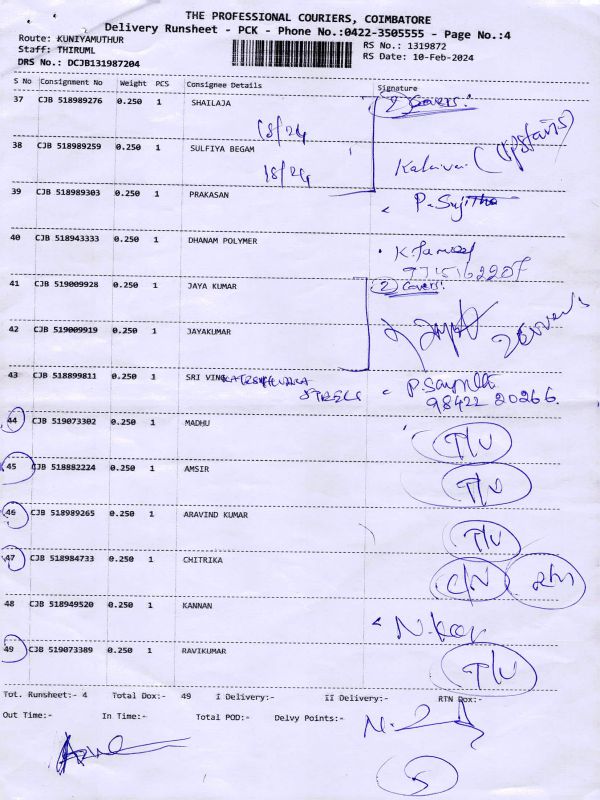 THE PROFESSIONAL COURIERS, COIMBATORE
Delivery Runsheet - PCK - Phone No.:0422-3505555 - Page No.:4
Route: KUNIYAMUTHUR
RS No.: 1319872
Staff: THIRUML
RS Date: 10-Feb-2024
DRS No.: DCJB131987204
S No Consignment No Weight PCS Consignee Details Signature
37 CJB 518989276 0.250 1 SHAILAJA 2 Covers!
18/24
38 CJB 518989259 0.250 1 SULFIYA BEGAM
18/24
39 CJB 518989303 0.250 1 PRAKASAN
40 CJB 518943333 0.250 1 DHANAM POLYMER
41 CJB 519009928 0.250 1 JAYA KUMAR 2 Covers!
42 CJB 519009919 0.250 1 JAYAKUMAR
43 CJB 518899811 0.250 1 SRI
98422 20266
44 CJB 519073302 0.250 1 MADHU T/U
45 CJB 518882224 0.250 1 AMSIR T/U
46 CJB 518989265 0.250 1 ARAVIND KUMAR T/U
47 CJB 518984733 0.250 1 CHITRIKA
48 CJB 518949520 0.250 1 KANNAN
49 CJB 519073389 0.250 1 RAVIKUMAR T/U
Tot. Runsheet:- 4 Total Dox:- 49 I Delivery:- II Delivery:- RTN Dox:-
Out Time:- In Time:- Total POD:- Delvy Points:-
5